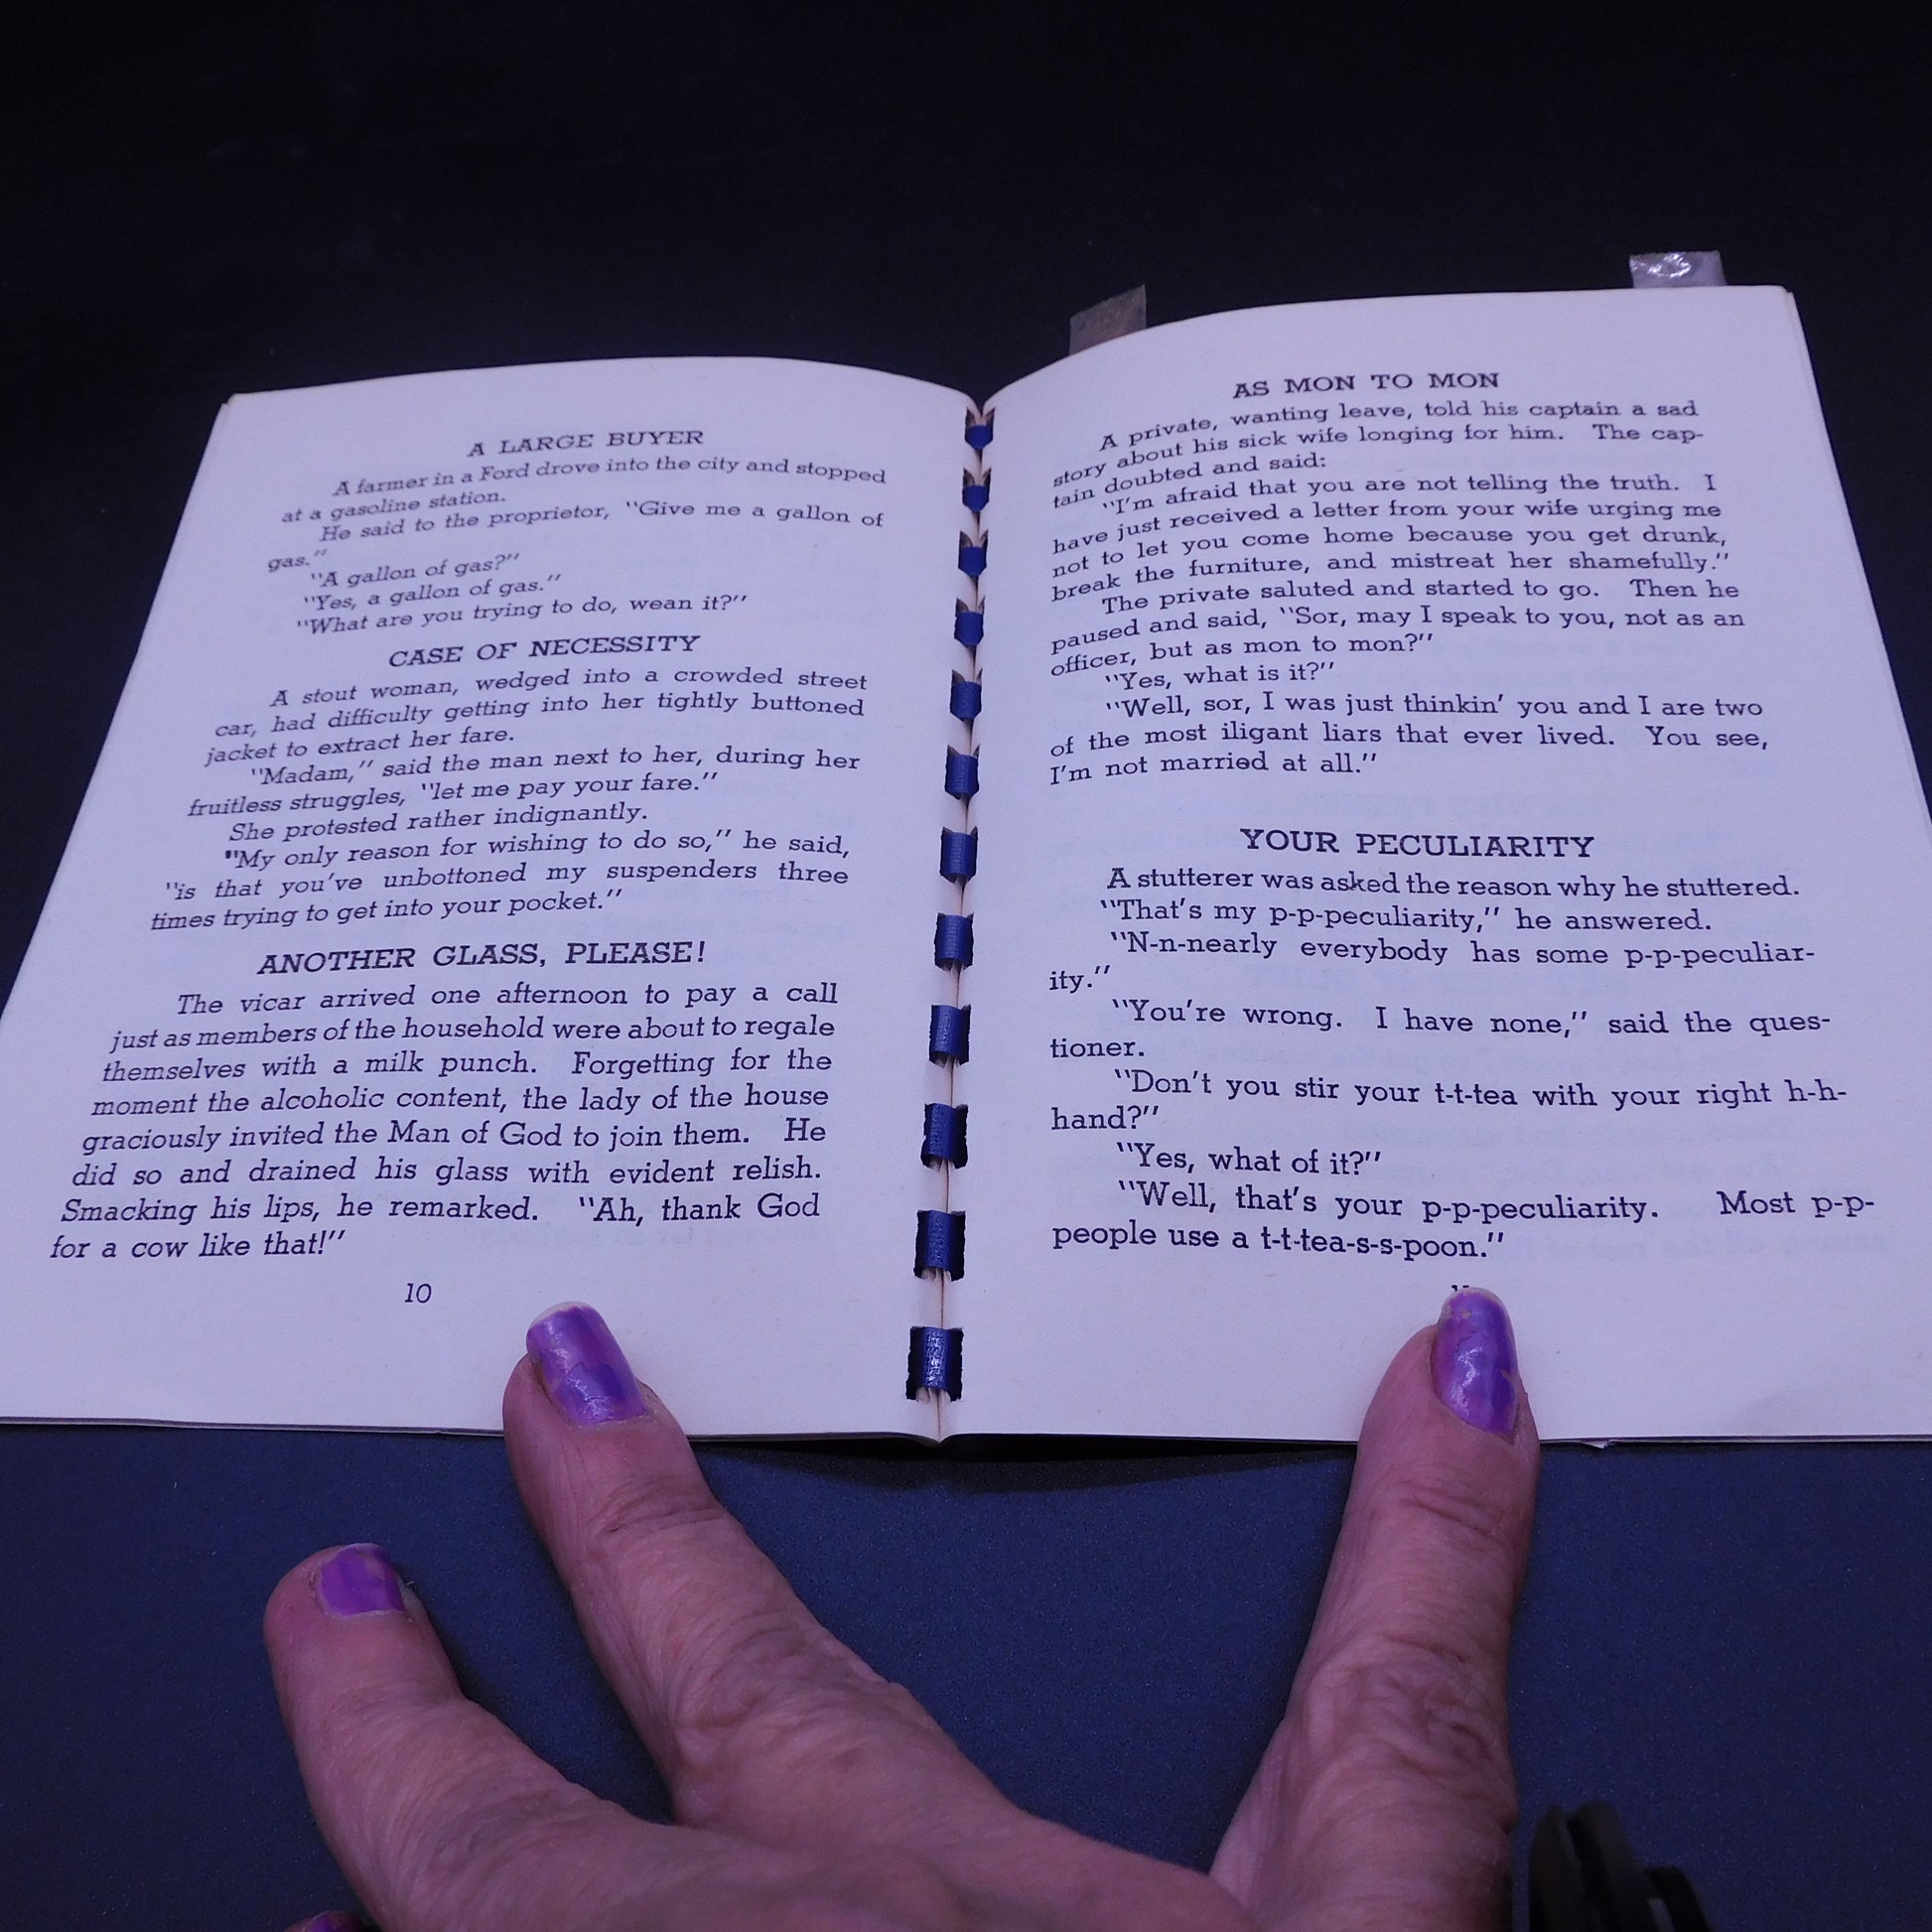 A LARGE BUYER
A farmer in a Ford drove into the city and stopped
at a gasoline station.
He said to the proprietor, "Give me a gallon of
gas."
"A gallon of gas?"
"Yes, a gallon of gas."
"What are you trying to do, wean it?"
CASE OF NECESSITY
A stout woman, wedged into a crowded street
car, had difficulty getting into her tightly buttoned
jacket to extract her fare.
"Madam," said the man next to her, during her
fruitless struggles, "let me pay your fare."
She protested rather indignantly.
"My only reason for wishing to do so," he said,
"is that you've unbottoned my suspenders three
times trying to get into your pocket."
ANOTHER GLASS, PLEASE!
The vicar arrived one afternoon to pay a call
just as members of the household were about to regale
themselves with a milk punch. Forgetting for the
moment the alcoholic content, the lady of the house
graciously invited the Man of God to join them. He
did so and drained his glass with evident relish.
Smacking his lips, he remarked. "Ah, thank God
for a cow like that!"
10
AS MON TO MON
A private, wanting leave, told his captain a sad
story about his sick wife longing for him. The cap-
tain doubted and said:
"I'm afraid that you are not telling the truth. I
have just received a letter from your wife urging me
not to let you come home because you get drunk,
break the furniture, and mistreat her shamefully."
The private saluted and started to go. Then he
paused and said, "Sor, may I speak to you, not as an
officer, but as mon to mon?"
"Yes, what is it?"
"Well, sor, I was just thinkin' you and I are two
of the most iligant liars that ever lived. You see,
I'm not married at all."
YOUR PECULIARITY
A stutterer was asked the reason why he stuttered.
"That's my p-p-peculiarity," he answered.
"N-n-nearly everybody has some p-p-peculiar-
ity."
"You're wrong. I have none," said the ques-
tioner.
"Don't you stir your t-t-tea with your right h-h-
hand?"
"Yes, what of it?"
"Well, that's your p-p-peculiarity. Most p-p-
people use a t-t-tea-s-s-poon."